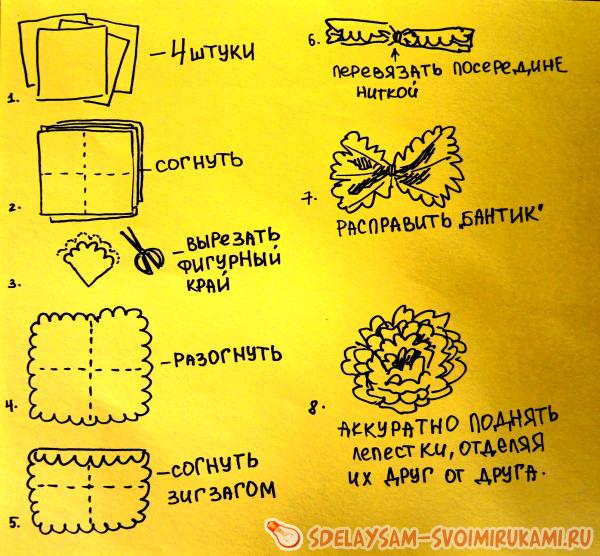 1.
– 4 ШТУКИ
2.
– СОГНУТЬ
3.
– ВЫРЕЗАТЬ
ФИГУРНЫЙ
КРАЙ
4.
– РАЗОГНУТЬ
5.
– СОГНУТЬ
ЗИГЗАГОМ
6.
ПЕРЕВЯЗАТЬ ПОСЕРЕДИНЕ
НИТКОЙ
7.
РАСПРАВИТЬ „БАНТИК"
8.
АККУРАТНО ПОДНЯТЬ
ЛЕПЕСТКИ, ОТДЕЛЯЯ
ИХ ДРУГ ОТ ДРУГА.
SDELAYSAM-SVOIMIRUKAMI.RU